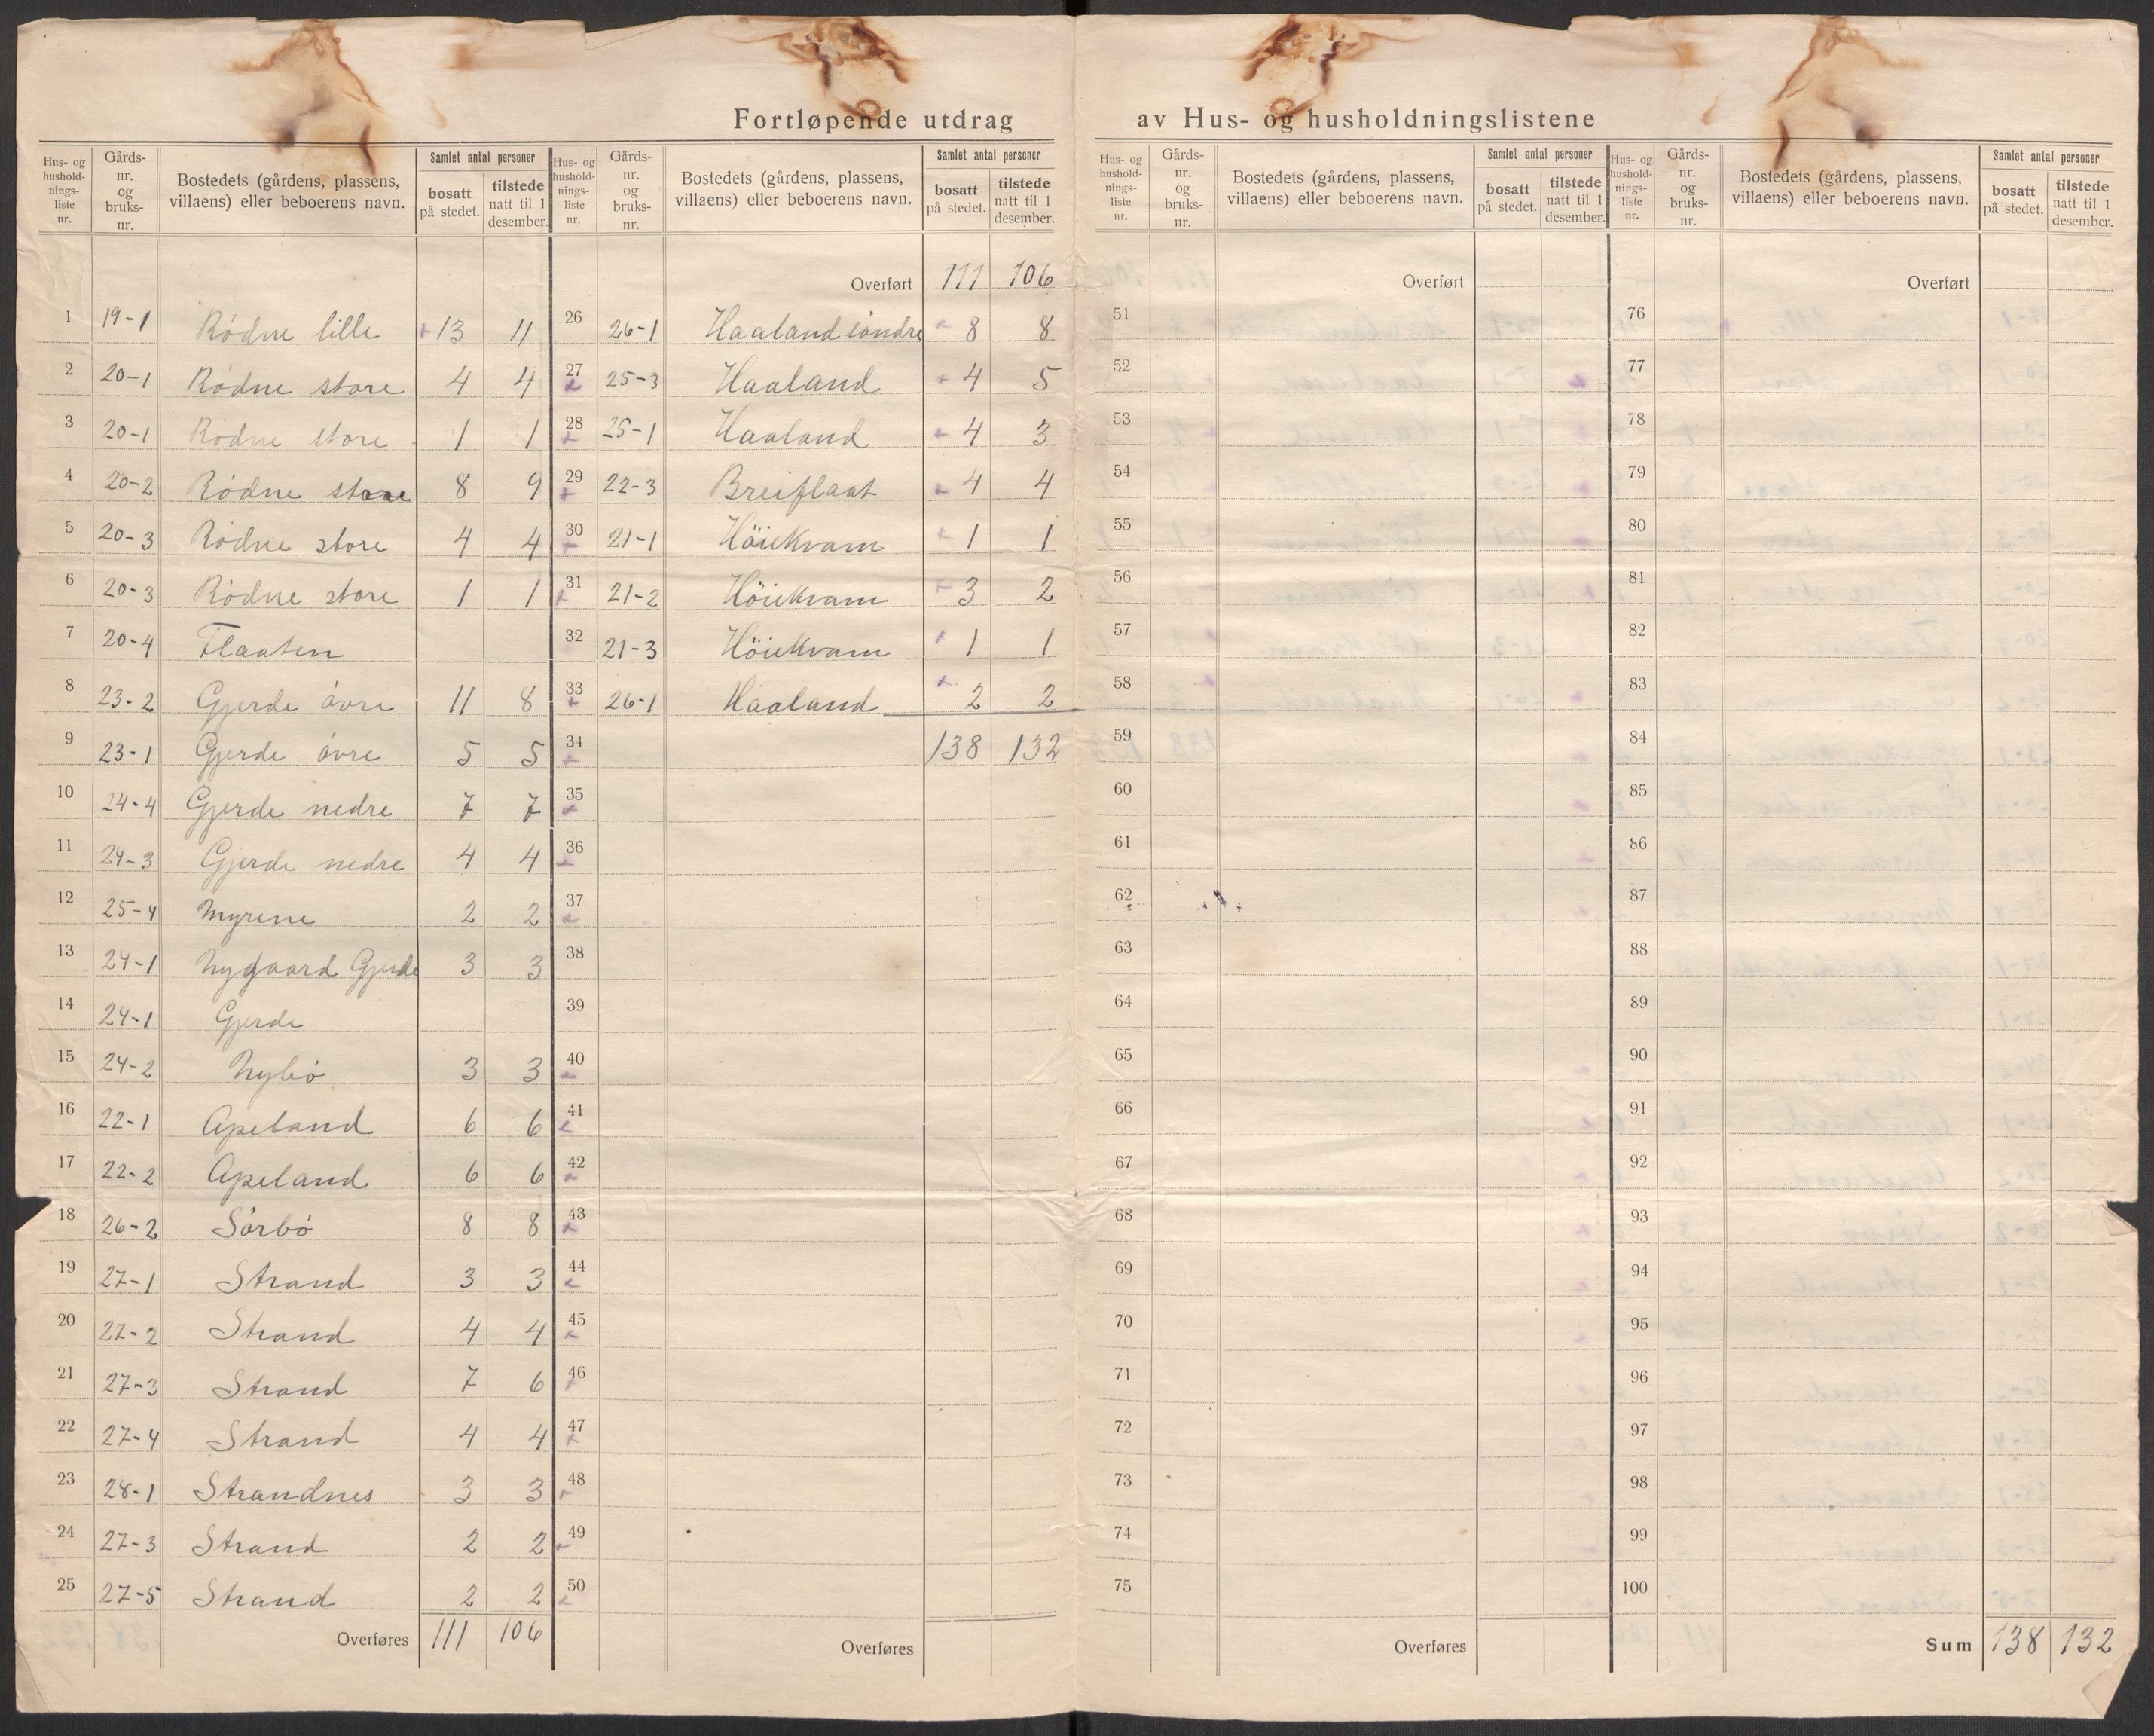 Fortløpende utdrag av Hus- og husholdningslistene
Hus- og hushold-nings-liste nr. | Gårds-nr. og bruks-nr. | Bostedets (gårdens, plassens, villaens) eller beboerens navn. | Samlet antal personer | bosatt på stedet. | tilstede natt til 1 desember.
1 19-1 Rødne lille 13 11
2 20-1 Rødne store 4 4
3 20-1 Rødne store 1 1
4 20-2 Rødne store 8 9
5 20-3 Rødne store 4 4
6 20-3 Rødne store 1 1
7 20-4 Flaaten
8 23-2 Gjerde øvre 11 8
9 23-1 Gjerde øvre 5 5
10 24-4 Gjerde nedre 7 7
11 24-3 Gjerde nedre 4 4
12 25-4 Myrene 2 2
13 24-1 Nygaard Gjerde 3 3
14 24-1 Gjerde
15 24-2 Nybø 3 3
16 22-1 Apeland 6 6
17 22-2 Apeland 6 6
18 26-2 Sørbø 8 8
19 27-1 Strand 3 3
20 27-2 Strand 4 4
21 27-3 Strand 7 6
22 27-4 Strand 4 4
23 28-1 Strandnes 3 3
24 27-3 Strand 2 2
25 27-5 Strand 2 2
Overføres 111 106
Hus- og hushold-nings-liste nr. | Gårds-nr. og bruks-nr. | Bostedets (gårdens, plassens, villaens) eller beboerens navn. | Samlet antal personer | bosatt på stedet. | tilstede natt til 1 desember.
Overført 111 106
26 26-1 Haaland söndre 8 8
27 25-3 Haaland 4 5
28 25-1 Haaland 4 3
29 22-3 Breiflaat 4 4
30 21-1 Höiekvam 1 1
31 21-2 Höiekvam 3 2
32 21-3 Höiekvam 1 1
33 26-1 Haaland 2 2
34 138 132
35
36
37
38
39
40
41
42
43
44
45
46
47
48
49
50
Overføres
Hus- og hushold-nings-liste nr. | Gårds-nr. og bruks-nr. | Bostedets (gårdens, plassens, villaens) eller beboerens navn. | Samlet antal personer | bosatt på stedet. | tilstede natt til 1 desember.
Overført
51
52
53
54
55
56
57
58
59
60
61
62
63
64
65
66
67
68
69
70
71
72
73
74
75
Overføres
Hus- og hushold-nings-liste nr. | Gårds-nr. og bruks-nr. | Bostedets (gårdens, plassens, villaens) eller beboerens navn. | Samlet antal personer | bosatt på stedet. | tilstede natt til 1 desember.
Overført
76
77
78
79
80
81
82
83
84
85
86
87
88
89
90
91
92
93
94
95
96
97
98
99
100
Sum 138 132